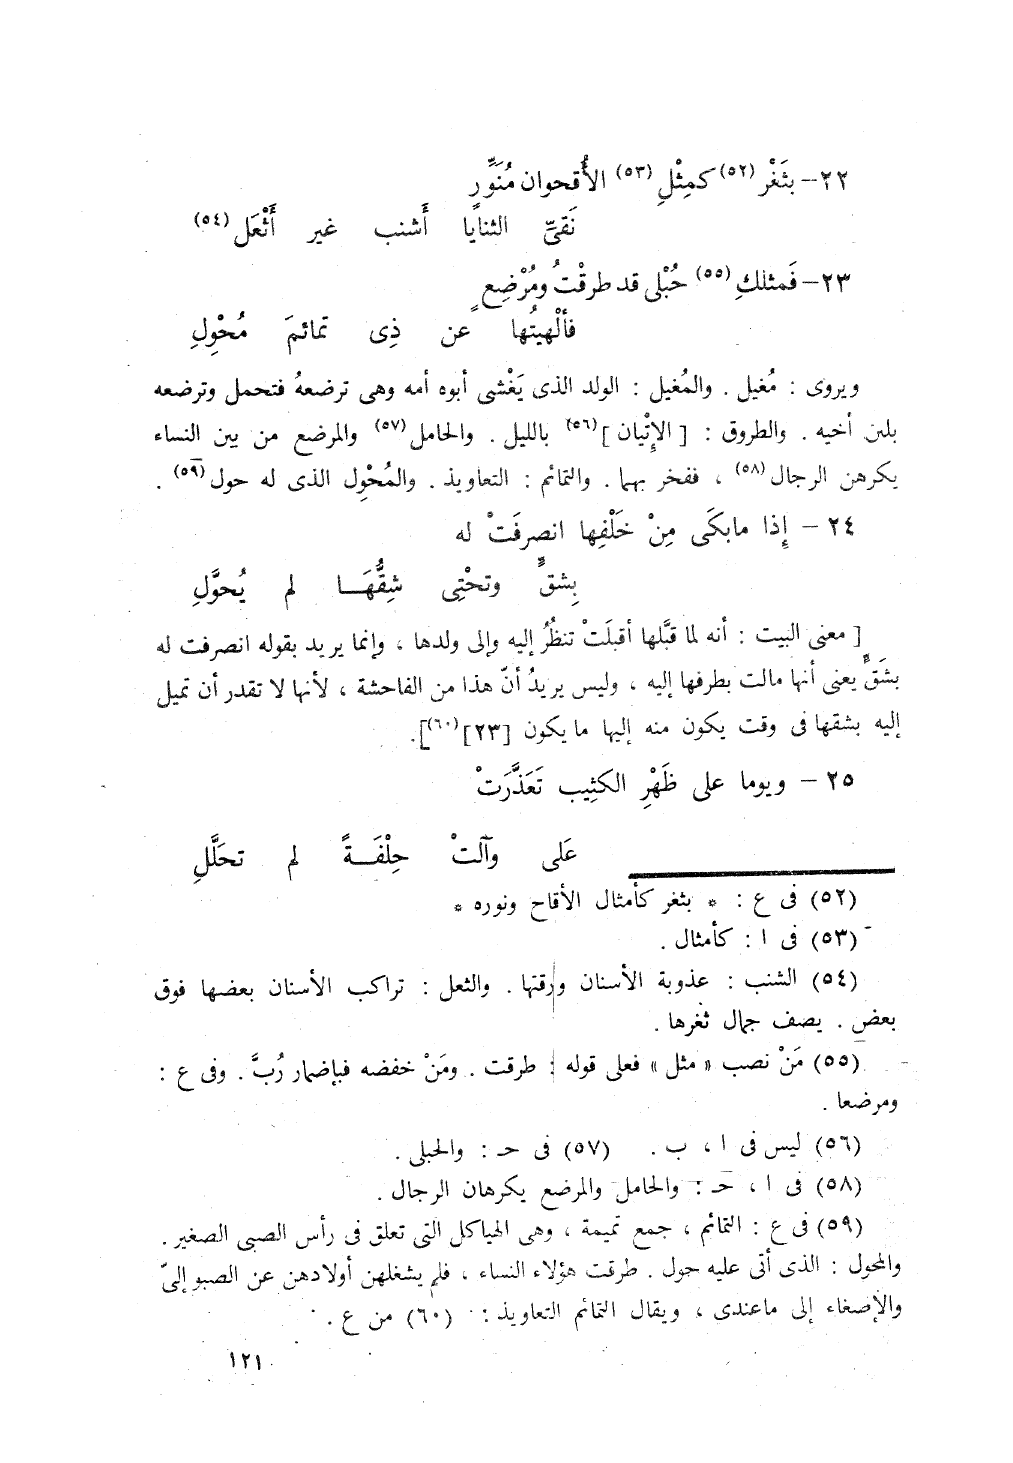 ٢٢- بثَغْر (٥٢) كمِثْلِ (٥٣) الأُقحوان مُنَوِّرٍ
نَقىِّ الثنايا أَشنب غير أَثْعَل (٥٤)
٢٣- فَمثلكِ (٥٥) حُبْلى قد طرقْتُ ومُرْضِعٍ
فألْهيتُها عن ذِى تمائمَ مُحْوِلِ
ويروى : مُغيل . والمُغيل : الولد الذى يَغْشى أبوه أمه وهى ترضعهُ فتحمل وترضعه
بلبن أخيه . والطروق : [ الإِتْيان ] (٥٦) بالليل . والحامل (٥٧) والمرضع من بين النساء
يكرهن الرجال (٥٨) ، ففخر بهما . والتمائم : التعاويذ . والمُحْوِل الذى له حول (٥٩) .
٢٤ - إِذا مابكَى مِنْ خَلْفِها انصرفَتْ له
بِشقٍّ وتحْتِى شِقُّهَــا لم يُحوَّلِ
[ معنى البيت : أنه لما قبَّلها أقبلَتْ تنظُرُ إليه وإلى ولدها ، وإنما يريد بقوله انصرفت له
بشَقٍّ يعنى أنها مالت بطرفها إليه ، وليس يريدُ أنّ هذا من الفاحشة ، لأنها لا تقدر أن تميل
إليه بشقها فى وقت يكون منه إليها ما يكون [٢٣] (٦٠)].
٢٥ - ويوما على ظَهْرِ الكثِيب تَعَذَّرَتْ
عَلى وآلتْ حِلْفَــةً لم تحَلَّلِ
(٥٢) فى ع : * بثغر كأمثال الأقاح ونوره *
(٥٣) فى ا : كأمثال .
(٥٤) الشنب : عذوبة الأسنان ورقتها . والثعل : تراكب الأسنان بعضها فوق
بعض . يصف جمال ثغرها .
(٥٥) مَنْ نصب « مثل » فعلى قوله : طرقت . ومَنْ خفضه فبإضمار رُبَّ . وفى ع :
ومرضعا .
(٥٦) ليس فى ا ، ب . (٥٧) فى حـ : والحبلى .
(٥٨) فى ا ، حـ : والحامل والمرضع يكرهان الرجال .
(٥٩) فى ع : التمائم ، جمع تميمة ، وهى الهياكل التى تعلق فى رأس الصبى الصغير .
والمحول : الذى أتى عليه حول . طرقت هؤلاء النساء ، فلم يشغلهن أولادهن عن الصبو إلىّ
والإصغاء إلى ماعندى ، ويقال التمائم التعاويذ : (٦٠) من ع .
١٢١